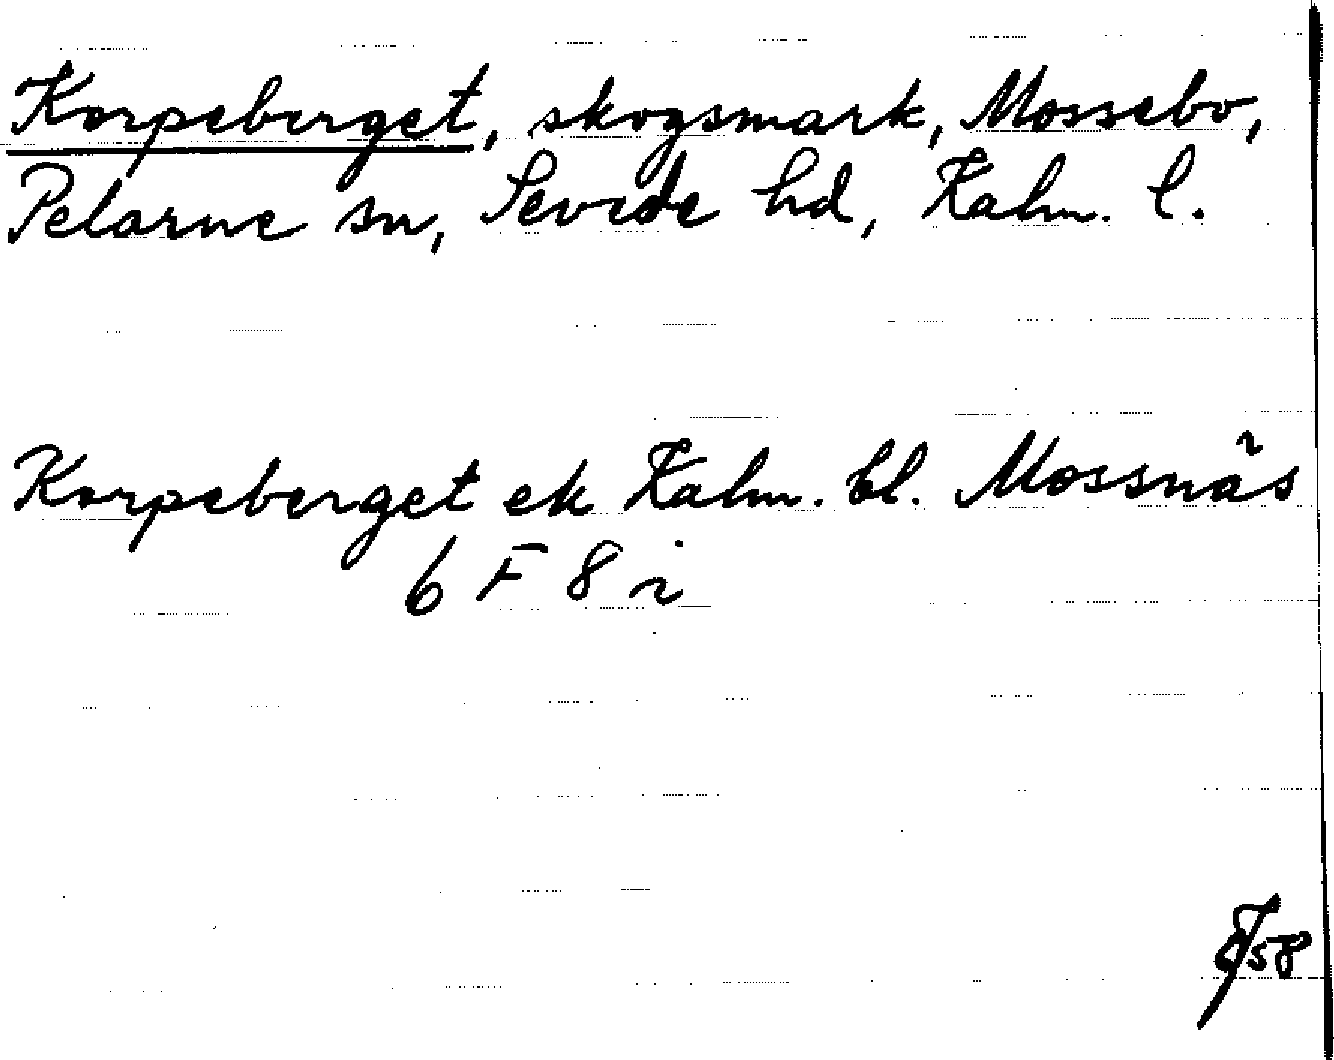 Korpeberget, skogsmark, Mossebo,
Pelarne sn, Sevede hd, Kalm. l.
Korpeberget ek Kalm. bl. Mossnäs
6 F 8 i